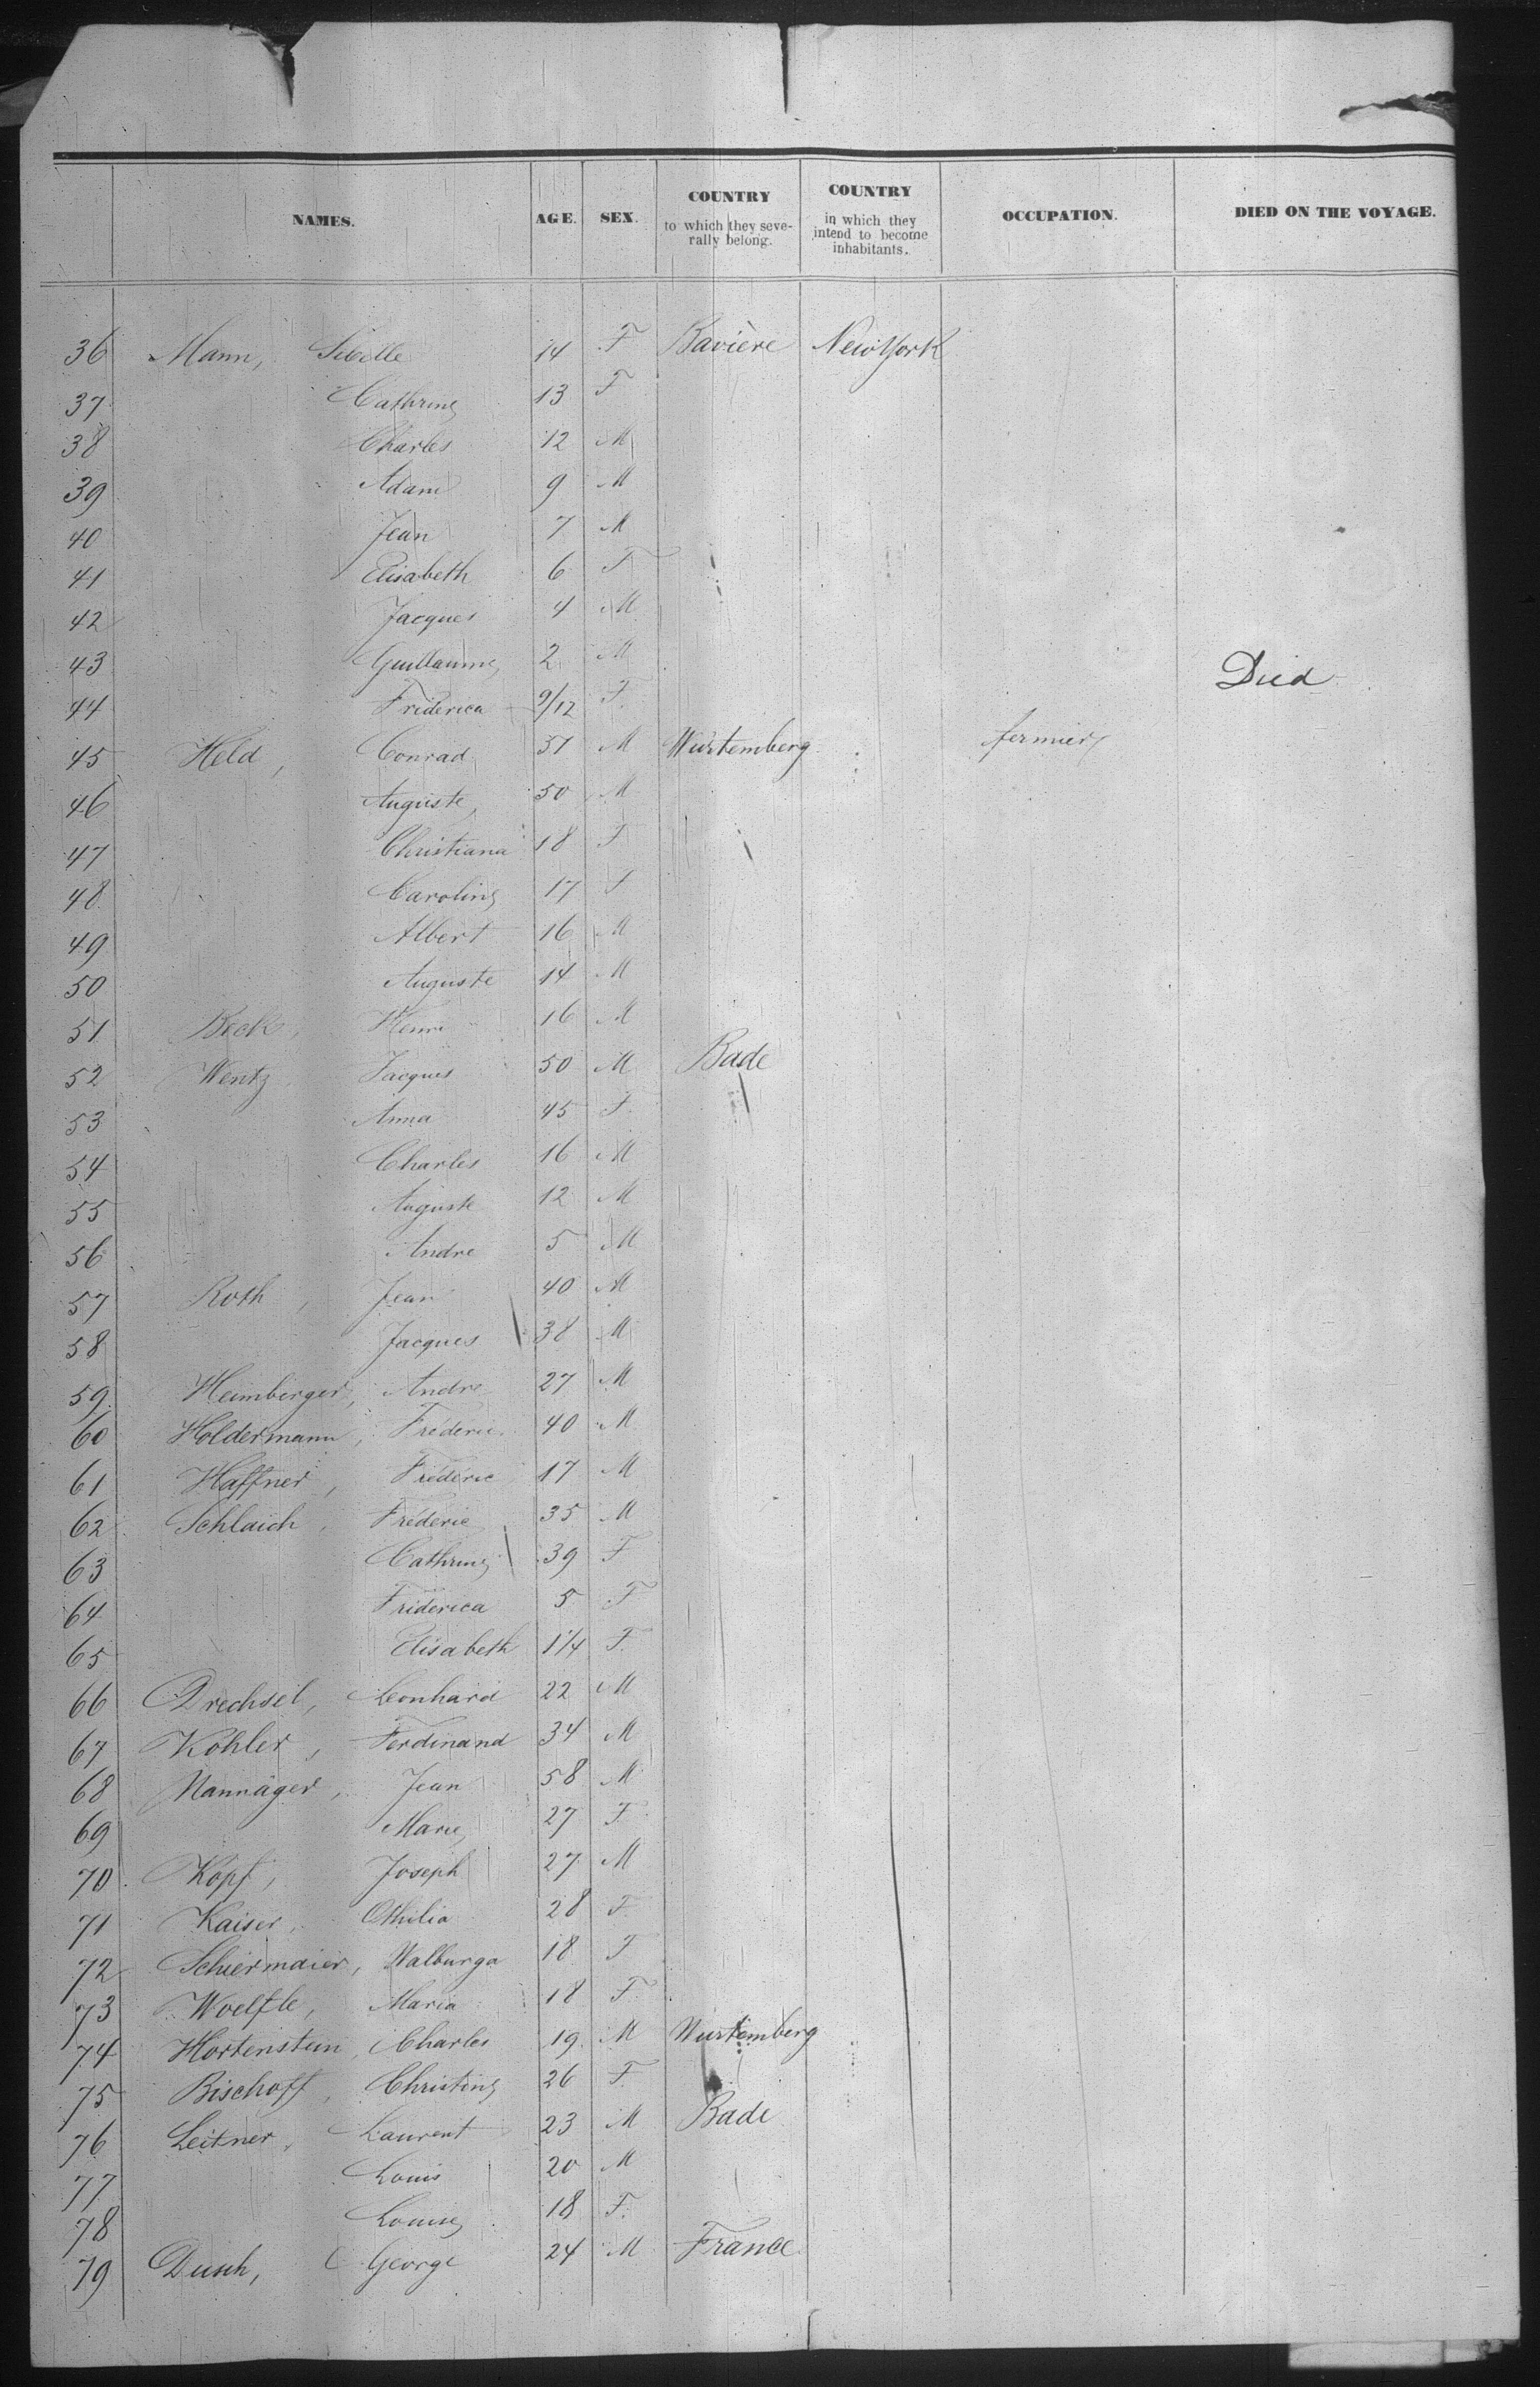 NAMES. AGE. SEX. COUNTRY to which they severally belong. COUNTRY in which they intend to become inhabitants. OCCUPATION. DIED ON THE VOYAGE.
36 Mann, Sibille 14 F Bavière New York
37 Cathrine 13 F
38 Charles 12 M
39 Adam 9 M
40 Jean 7 M
41 Elisabeth 6 F
42 Jacques 4 M
43 Guillaume 2 M
44 Friderica 9/12 F Died
45 Held, Conrad 51 M Würtemberg fermier
46 Auguste, 50 M
47 Christiana 18 F
48 Caroline 17 F
49 Albert 16 M
50 Auguste 14 M
51 Beck, Henri 16 M
52 Wentz Jacques 50 M Bade
53 Anna 45 F
54 Charles 16 M
55 Auguste 12 M
56 Andre 5 M
57 Roth, Jean 40 M
58 Jacques 38 M
59 Heimberger, Andre 27 M
60 Holdermann, Fréderic 40 M
61 Haffner, Fréderic 17 M
62 Schlaich, Fréderic 35 M
63 Cathrine 39 F
64 Friderica 5 F
65 Elisabeth 1 1/4 F
66 Drechsel, Leonhard 22 M
67 Köhler, Ferdinand 34 M
68 Nannäger, Jean 58 M
69 Marie 27 F
70 Kopf, Joseph 27 M
71 Kaiser, Othilia 28 F
72 Schiermaier, Walburga 18 F
73 Woelfle, Maria 18 F
74 Hortenstein, Charles 19 M Wurtemberg
75 Bischoff, Christine 26 F
76 Leitner, Laurent 23 M Bade
77 Louis 20 M
78 Louise 18 F
79 Dusch, George 24 M France